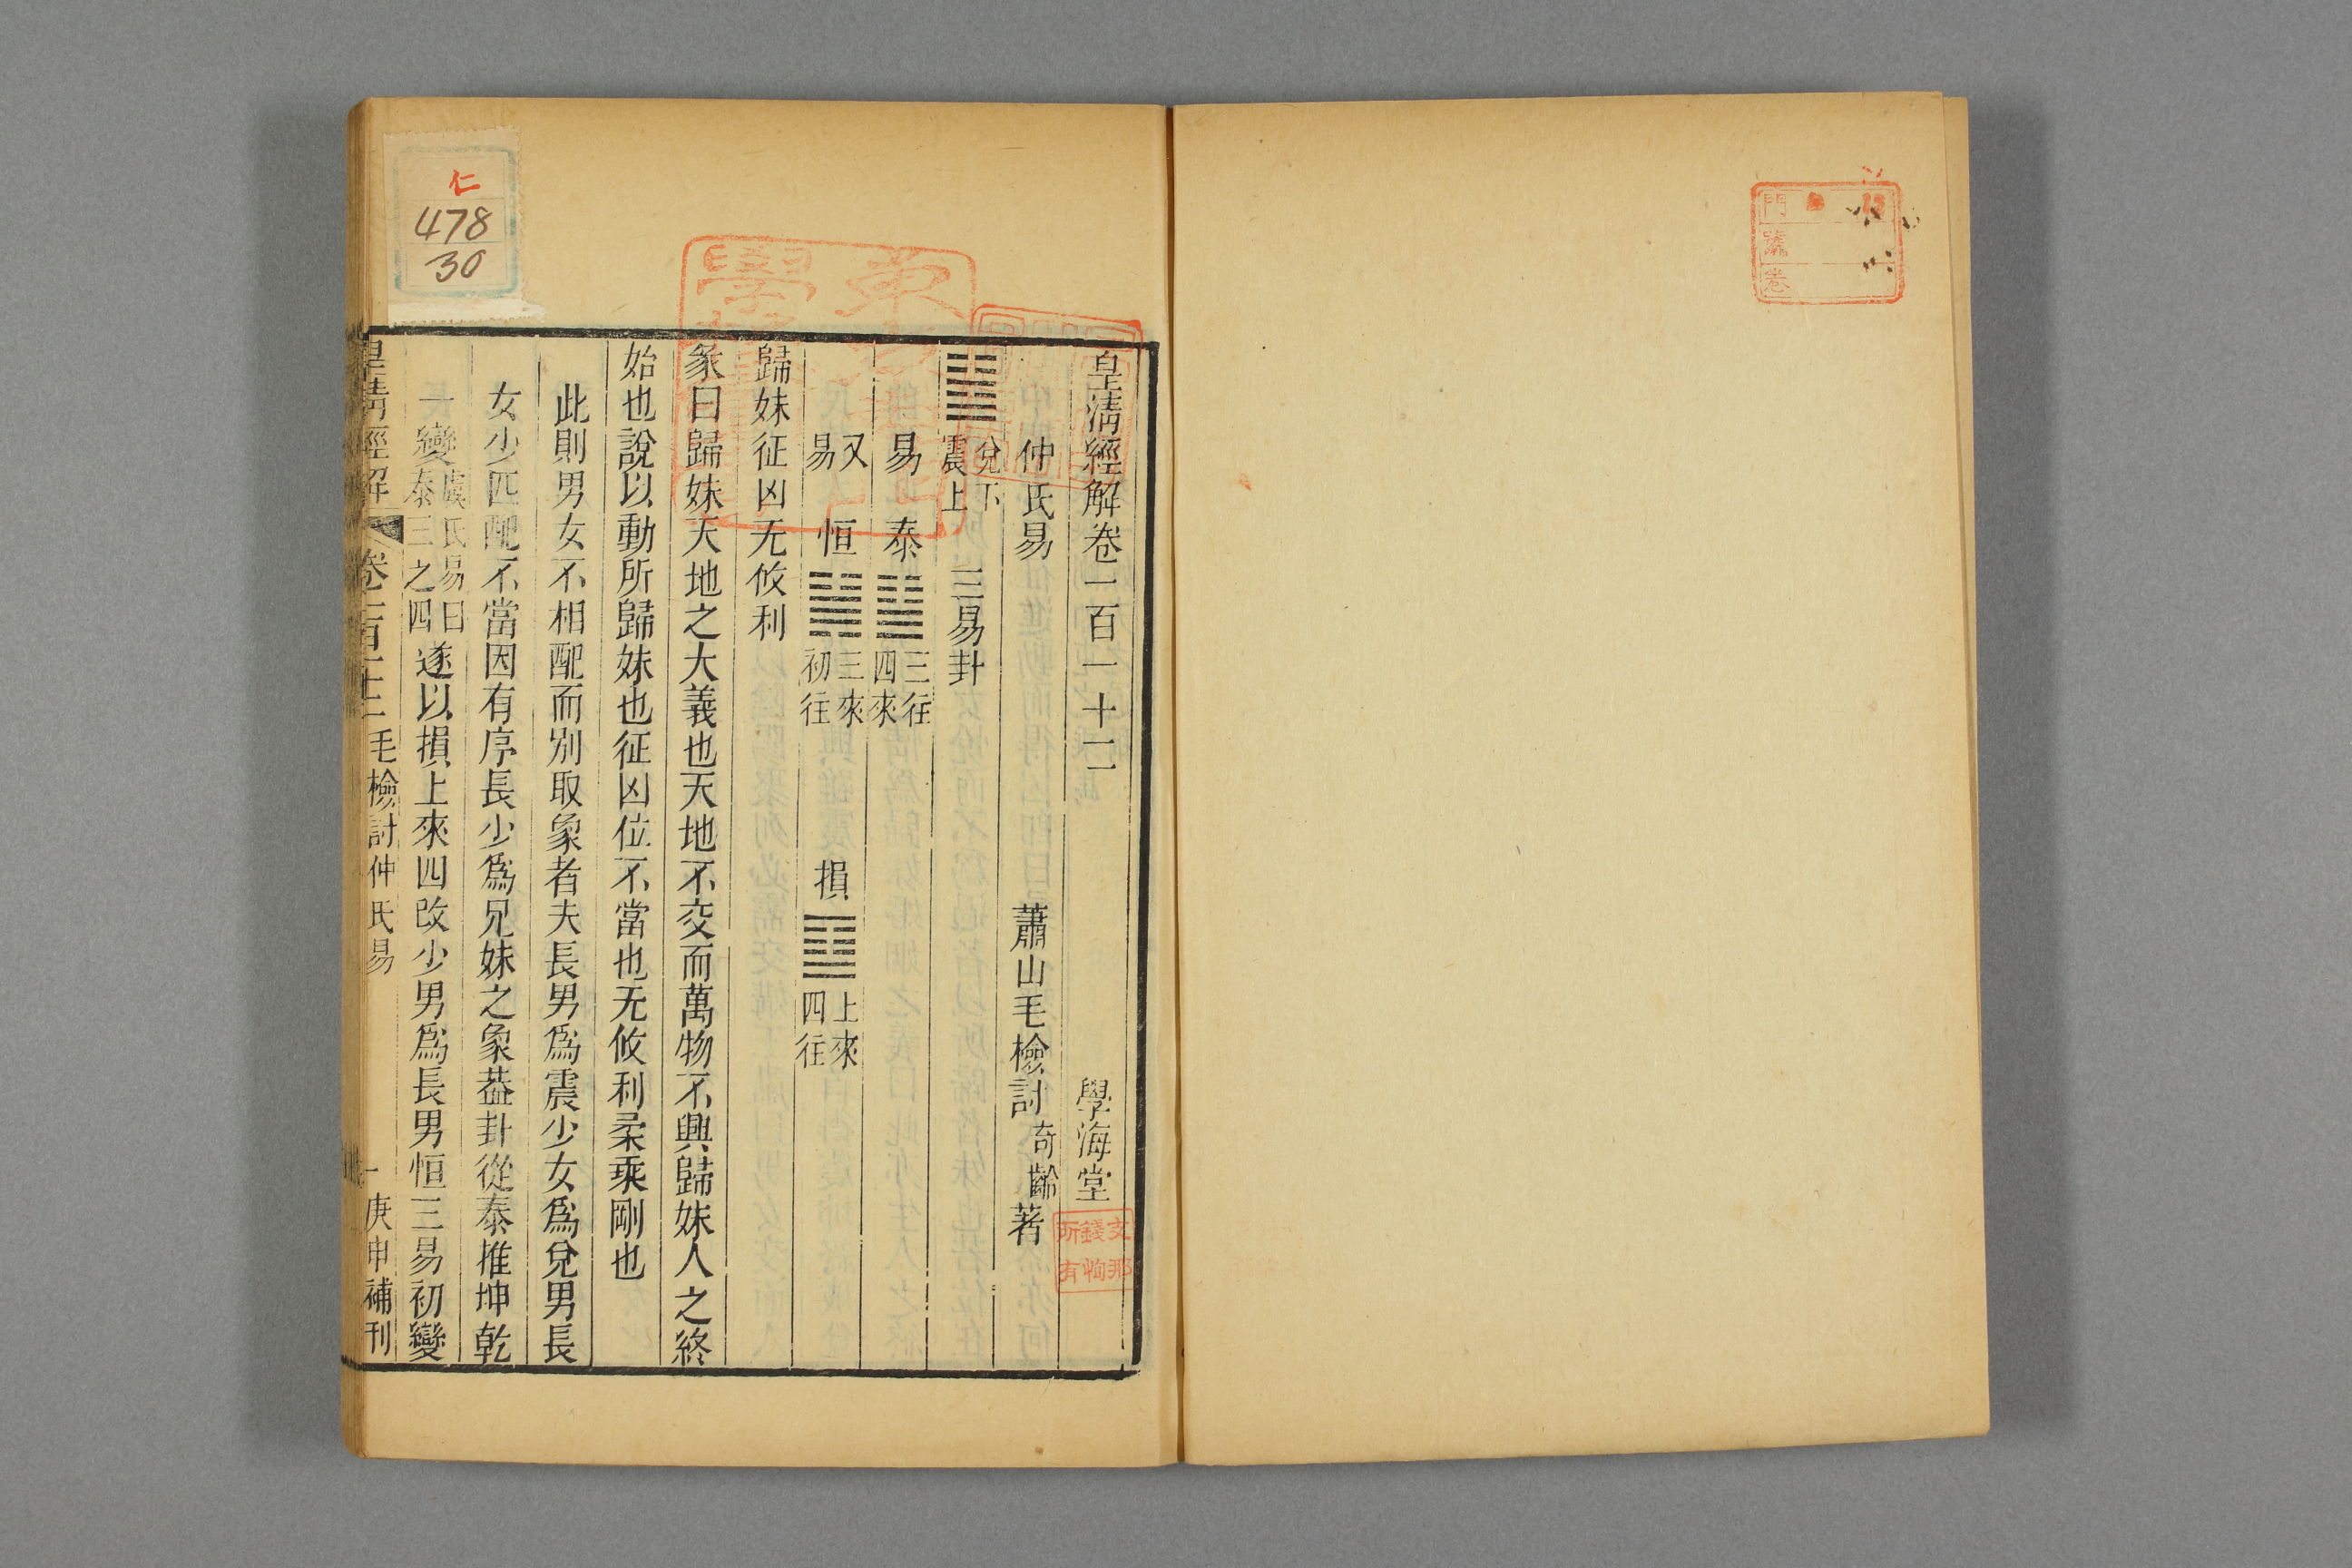 皇清經解卷一百一十二
學海堂
仲氏易
蕭山毛檢討奇齡著
兌下
震上
三易卦
易 泰 三往
四來
又易 恒 三來
初往
損 上來
四往
歸妹征凶无攸利
彖曰歸妹天地之大義也天地不交而萬物不興歸妹人之終
始也說以動所歸妹也征凶位不當也无攸利柔乘剛也
此則男女不相配而別取象者夫長男爲震少女爲兌男長
女少匹配不當因有序長少爲兄妹之象葢卦從泰推坤乾
一變虞氏易曰
泰三之四
遂以損上來四改少男爲長男恒三易初變
皇清經解
卷一百十二 毛檢討仲氏易
一 庚申補刊
支那
錢恂
所有
門
號
卷
仁
478
30